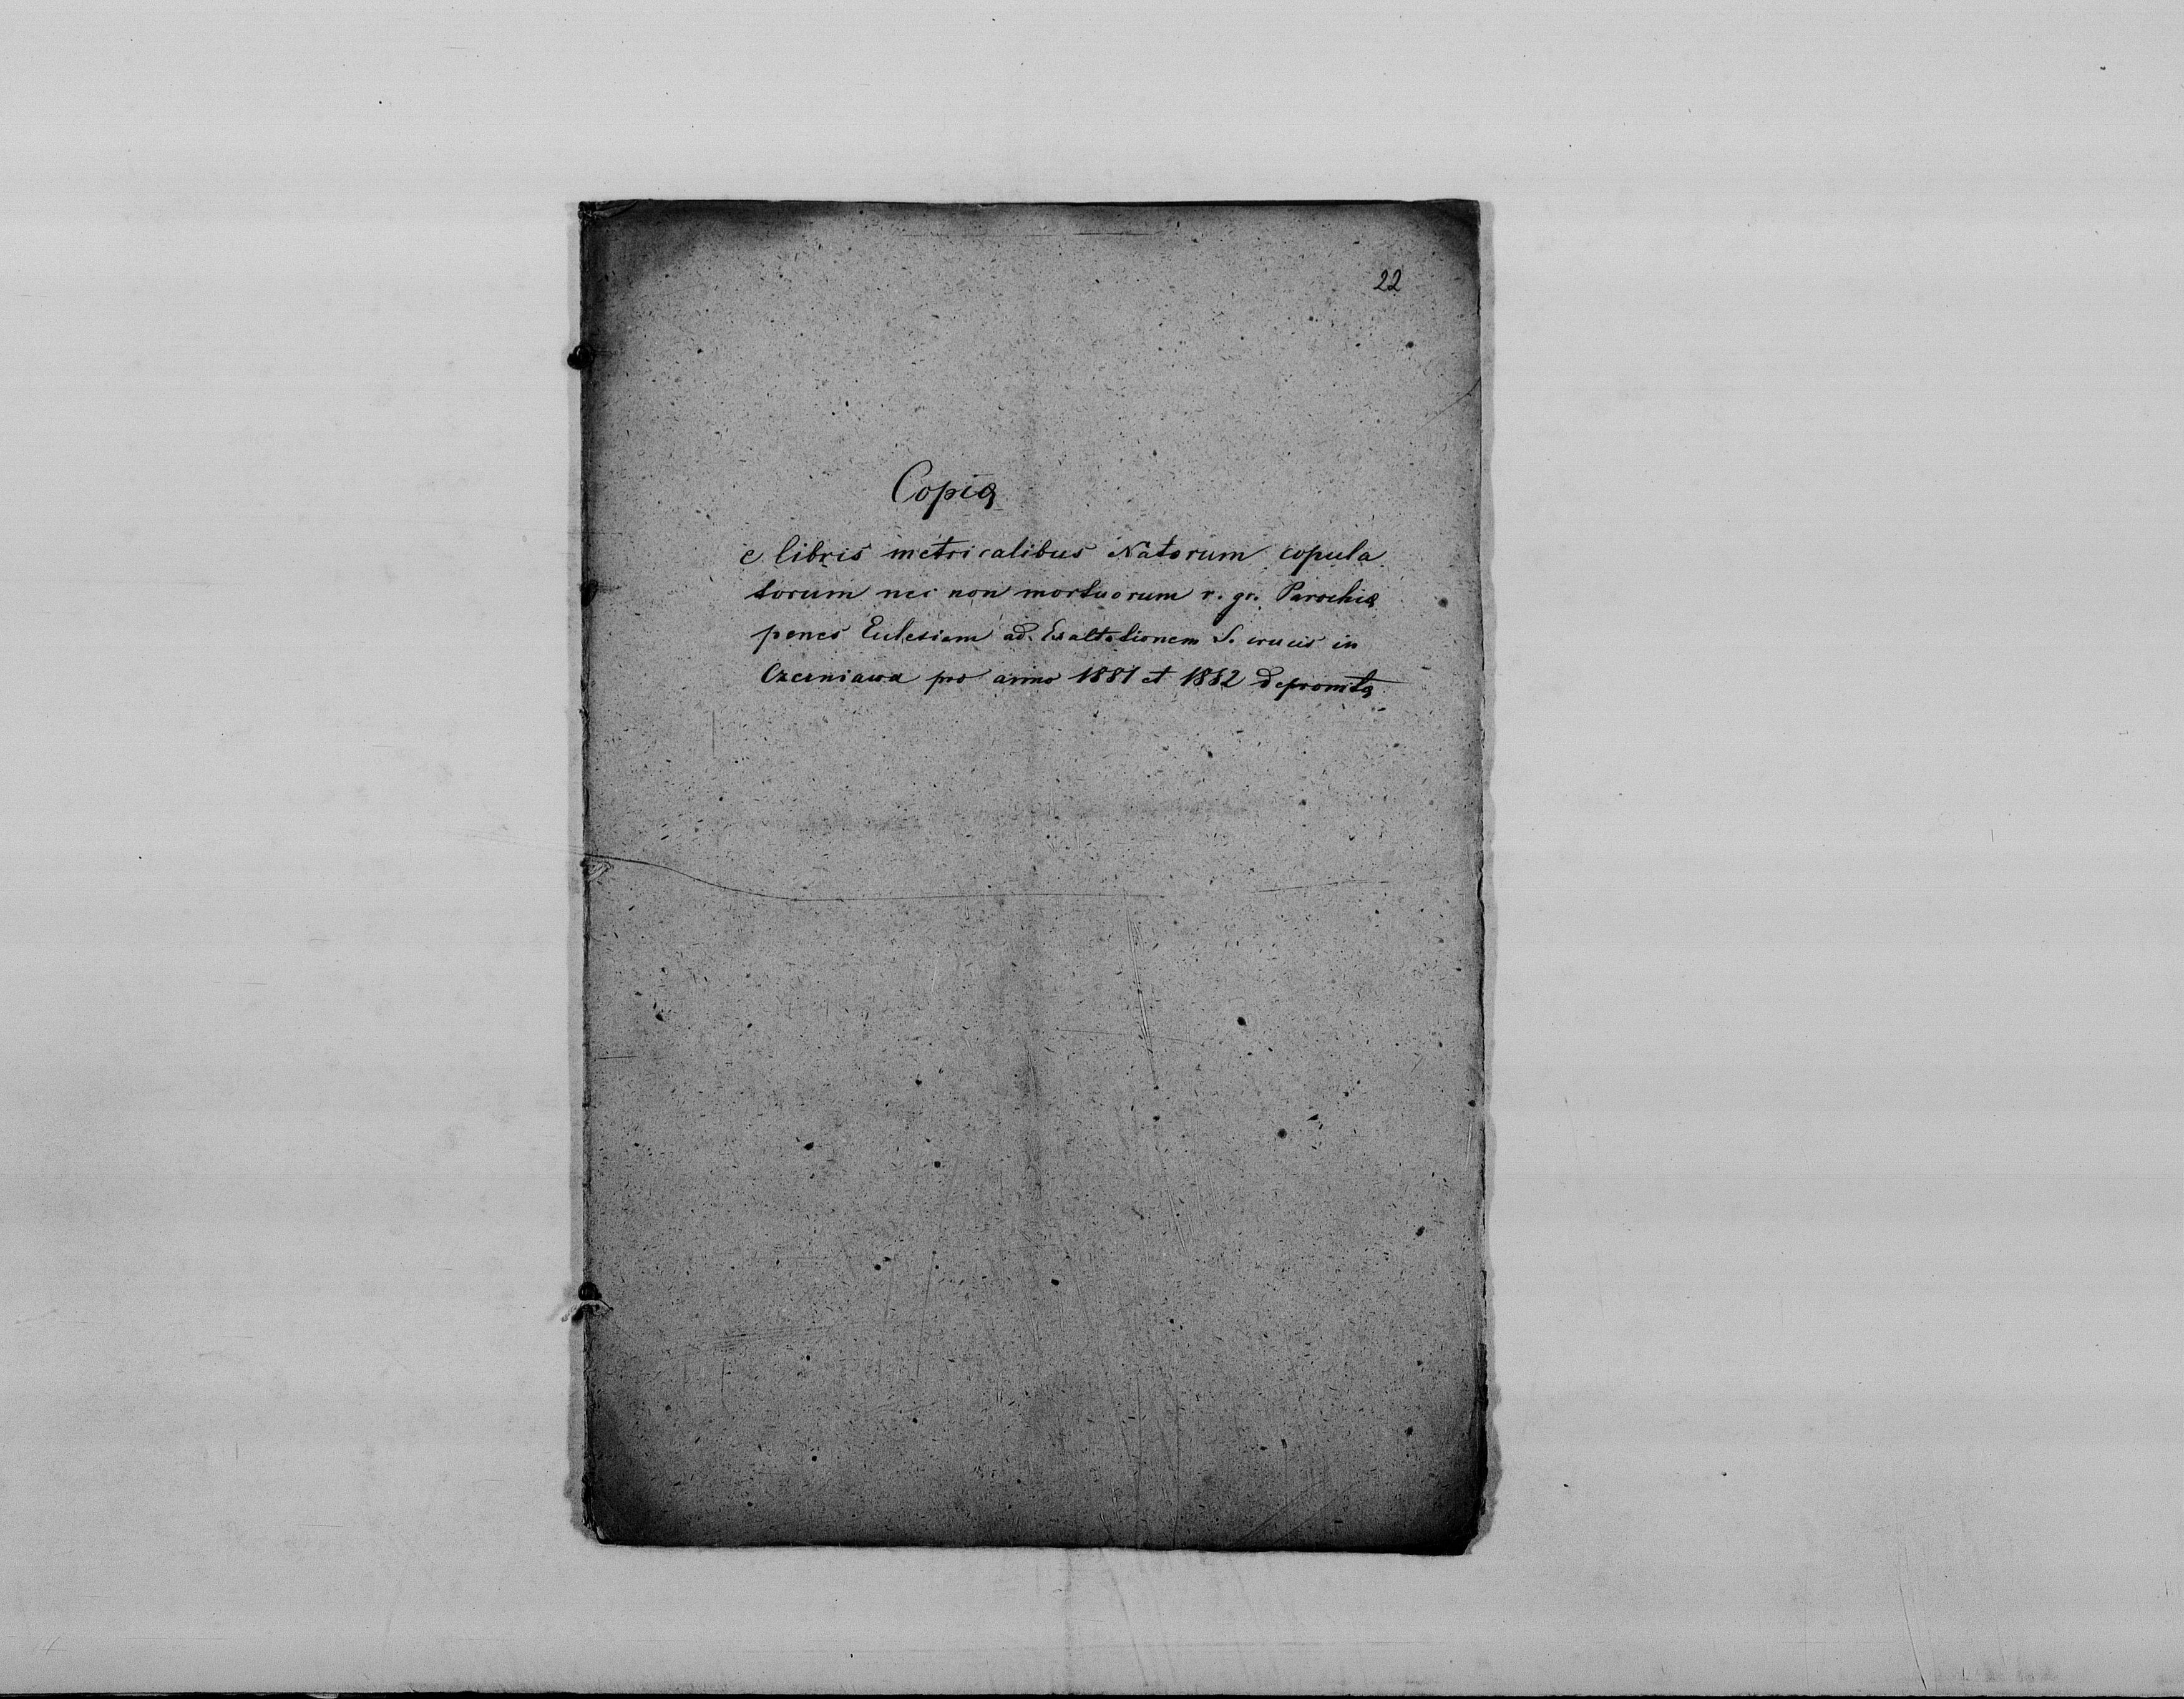 22
Copia
e libris metricalibus Natorum copula
torum nec non mortuorum r. gr. Parochiæ
penes Eclesiam ad Exaltationem S. crucis in
Czerniawa pro anno 1881 et 1882 depromta